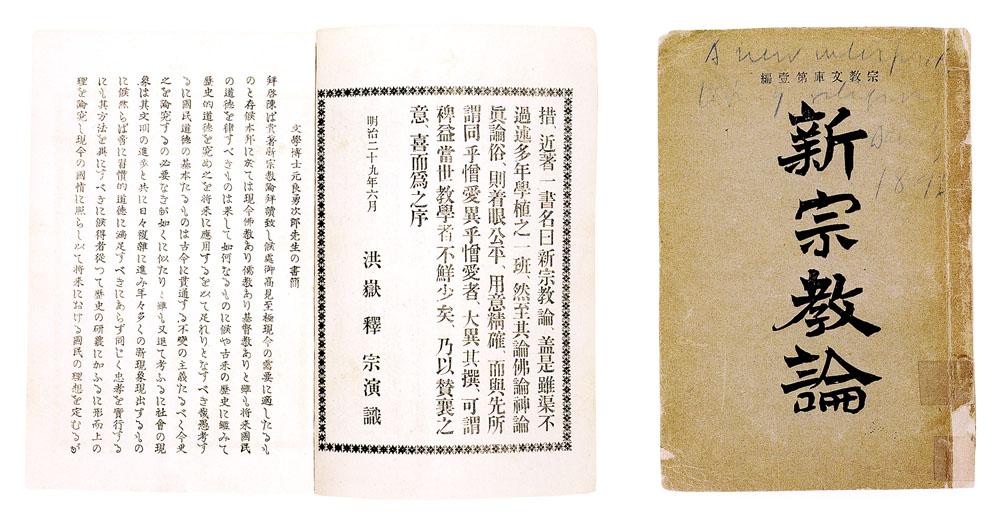 措、近著一書名曰新宗教論、盖是雖渠不
過述多年學植之一班、然至其論佛論神論
眞論俗、則着眼公平、用意精確、而與先所
謂同乎憎愛異乎憎愛者、大異其撰、可謂
裨益當世教學者不鮮少矣、乃以賛襄之
意、喜而爲之序
明治二十九年六月
洪嶽釋宗演識
文學博士元良勇次郎先生の書簡
拜啓陳ば貴著新宗教論拜讀致し候處御高見至極現今の需要に適したるも
のと存候本邦に於ては現今佛教あり儒教あり基督教ありと雖も將來國民
の道德を律すべきものは果して如何なるものに候や古來の歷史に鑑みて
歷史的道德を究め之を將來に應用するを以て足れりとなすべき哉愚考す
るに國民道德の基本たるものは古今に貫通する不變の主義たるべく今更
之を論究するの必要なきが如くに似たりと雖も又退て考ふるに社會の現
象は其文明の進歩と共に日々複雜に進み年々多くの新現象現出するもの
に候然らば啻に習慣的道德に滿足すべきにあらず同じく忠孝を實行する
にも其方法を異にすべきに候得者從つて歷史の に加ふるに形而上の
理を論究し現今の國情に照らし以て將來における國民の理想を定むるが
A new interpret
宗教文庫第壹編
新宗教論